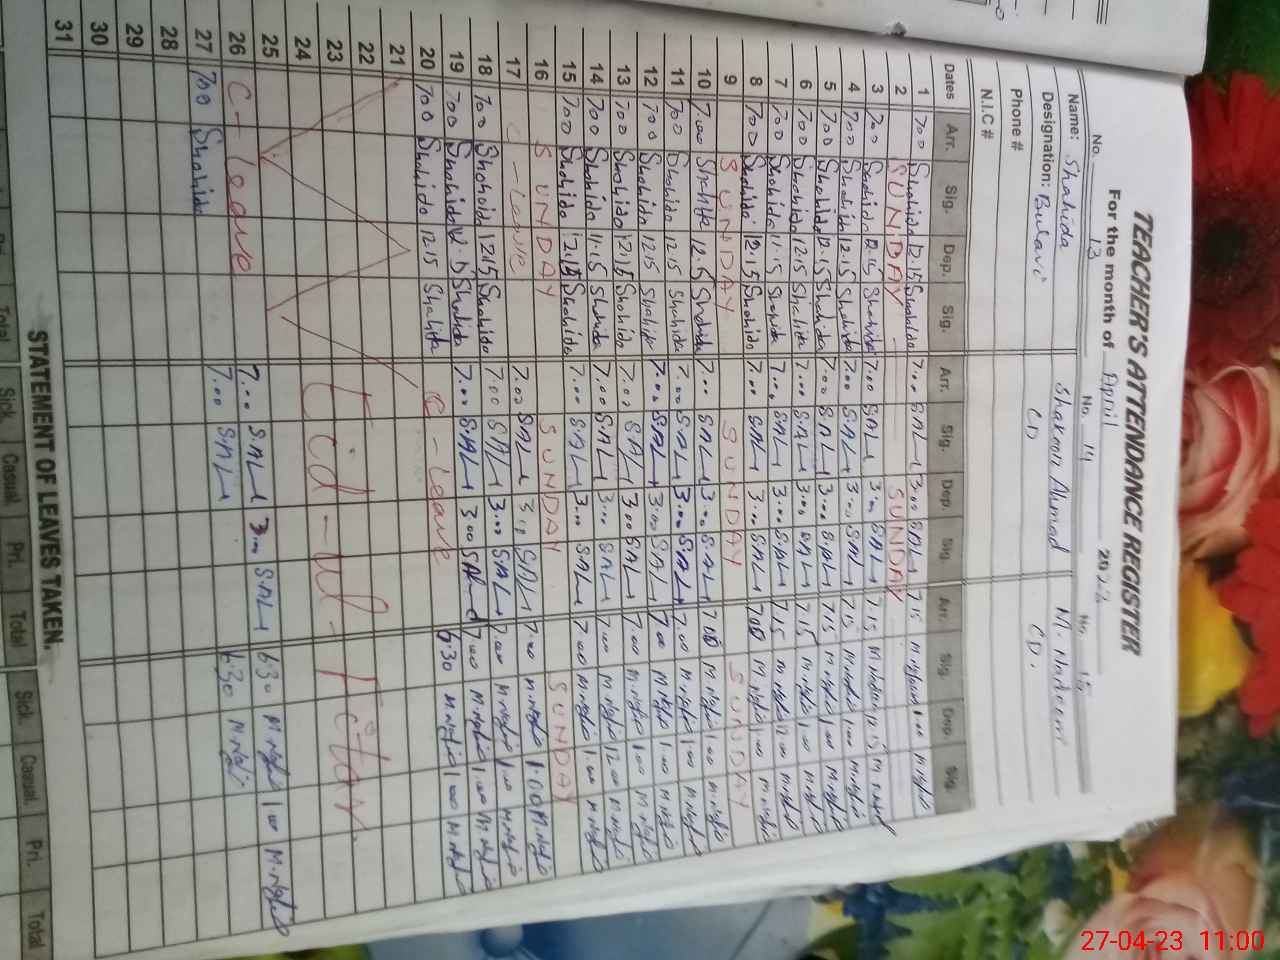 TEACHER'S ATTENDANCE REGISTER
For the month of April 2022
No. 13 No. 14 No. 15
Name: Shahida Shakoor Ahmad M. Nadeem
Designation: Bulavi CD CD.
Phone #
N.I.C #
Dates Arr. Sig. Dep. Sig. Arr. Sig. Dep. Sig. Arr. Sig. Dep Sig.
1 700 Shahida 12.15 Shahida 7.00 SAL 3.00 SAL 7.15 1.00
2 SUNDAY SUNDAY
3 700 Shahida 12.15 Shahida 7.00 SAL 3.00 SAL 7.15 12.15
4 700 Shahida 12.15 Shahida 7.00 SAL 3.00 SAL 7.15 1.00
5 700 Shahida 12.15 Shahida 7.00 SAL 3.00 SAL 7.15 1.00
6 700 Shahida 12.15 Shahida 7.00 SAL 3.00 SAL 7.15 1.00
7 700 Shahida 11.15 Shahida 7.00 SAL 3.00 SAL 7.15 12.00
8 700 Shahida 12.15 Shahida 7.00 SAL 3.00 SAL 7.00 1.00
9 SUNDAY SUNDAY SUNDAY
10 7.00 Shahida 12.15 Shahida 7.00 SAL 3.00 SAL 7.00 1.00
11 700 Shahida 12.15 Shahida 7.00 SAL 3.00 SAL 7.00 1.00
12 700 Shahida 12.15 Shahida 7.00 SAL 3.00 SAL 7.00 1.00
13 700 Shahida 12.15 Shahida 7.00 SAL 3.00 SAL 7.00 1.00
14 700 Shahida 11.15 Shahida 7.00 SAL 3.00 SAL 7.00 12.00
15 700 Shahida 12.15 Shahida 7.00 SAL 3.00 SAL 7.00 1.00
16 SUNDAY SUNDAY SUNDAY
17 C-Leave 7.00 SAL 3.00 SAL 7.00 1.00
18 700 Shahida 12.15 Shahida 7.00 SAL 3.00 SAL 7.00 1.00
19 700 Shahida 12.15 Shahida 7.00 SAL 3.00 SAL 6:30 1.00
20 700 Shahida 12.15 Shahida C-Leave
21
22
23 Eid-ul-Fitar
24
25 7.00 SAL 3.00 SAL 6:30 1.00
26 C-Leave 7.00 SAL 6:30
27 700 Shahida
28
29
30
31
STATEMENT OF LEAVES TAKEN.
Total Sick. Casual Pri. Total Sick. Casual. Pri. Total
27-04-23 11:00